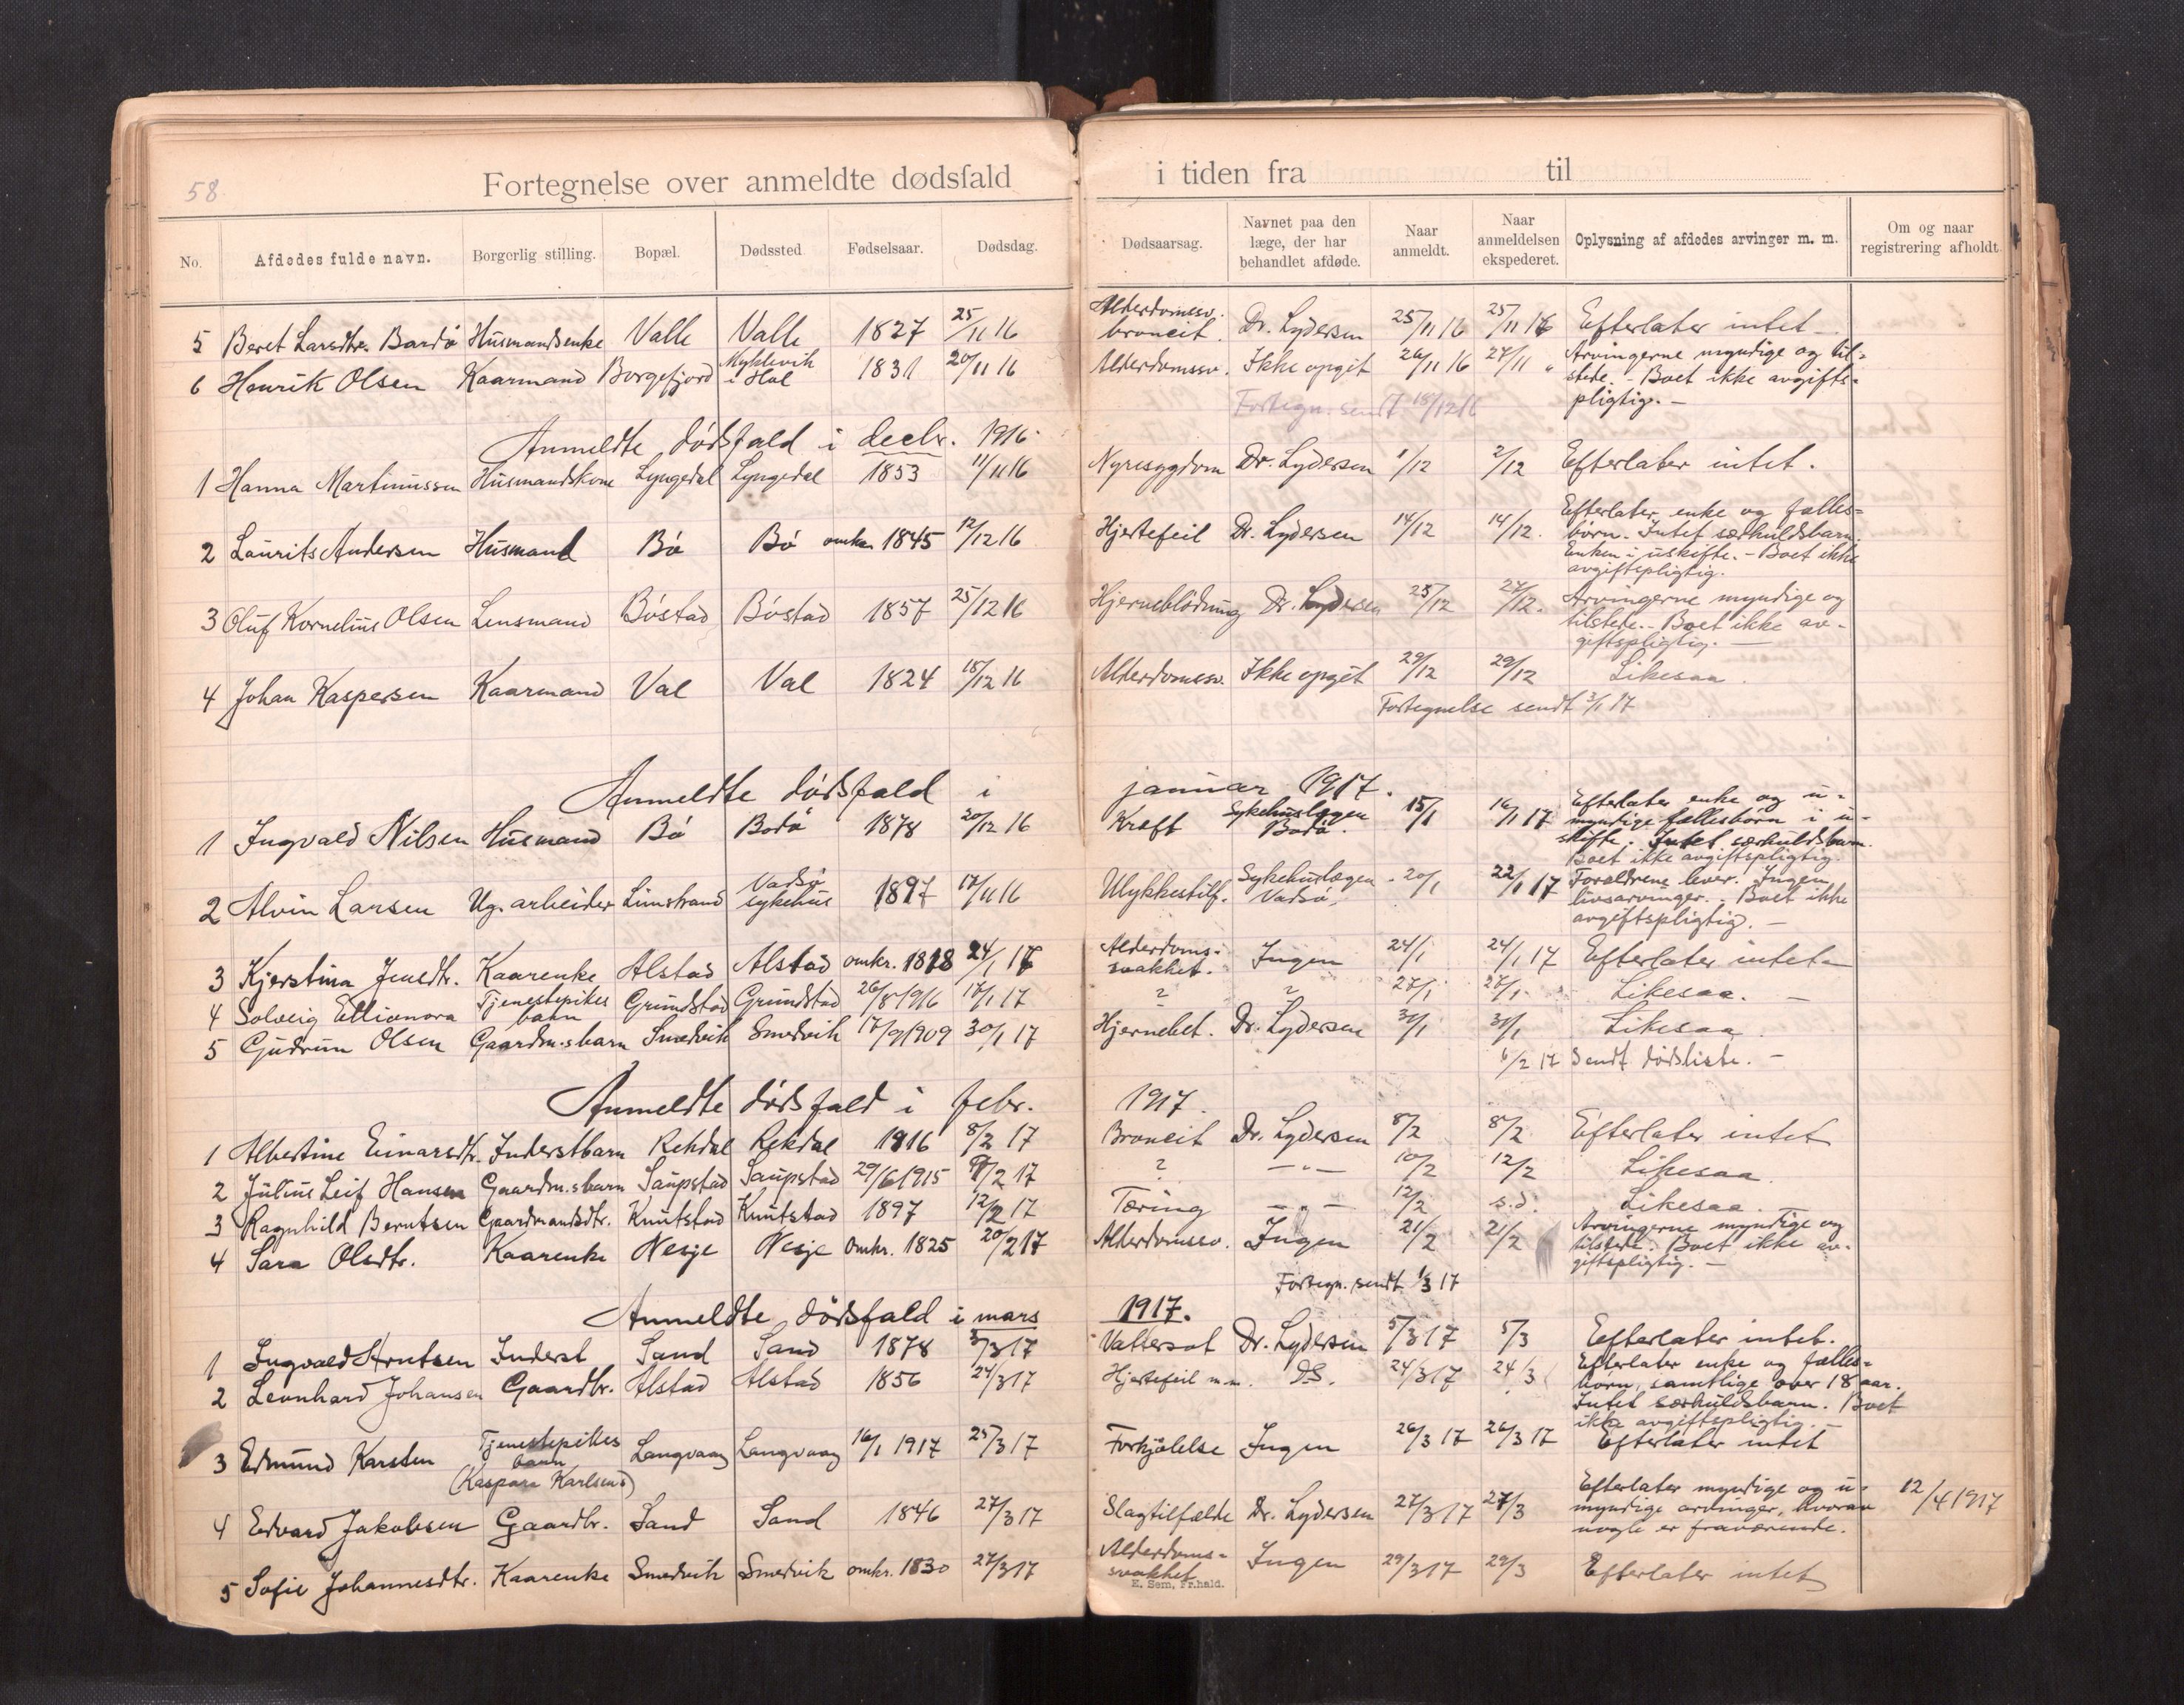 58
Fortegnelse over anmeldte dødsfald i tiden fra til
No. Afdødes fulde navn. Borgerlig stilling. Bopæl. Dødssted Fødselsaar. Dødsdag. Dødsaarsag. Navnet paa den læge, der har behandlet afdøde. Naar anmeldt. Naar anmeldelsen ekspederet. Oplysning af afdødes arvinger m. m. Om og naar registrering afholdt.
5 Beret Larsdtr. Bardö Husmandsenke Valle Valle 1827 25/11 16 Alderdomssv. broncit. Dr. Lydersen 25/11 16 25/11 16 Efterlater intet
6 Henrik Olsen Kaarmand Borgefjord Myklevik i Hol 1831 20/11 16 Alderdomssv. Ikke opgit 26/11 16 27/11 " Arvingerne myndige og til=
stede. - Boet ikke avgifts=
pligtig. -
Fortegn. sendt 18/12 16
Anmeldte dödsfald i decbr. 1916
1 Hanna Martinussen Husmandskone Lyngedal Lyngedal 1853 11/11 16 Nyresygdom Dr. Lydersen 1/12 2/12 Efterlater intet.
2 Laurits Andersen Husmand Bö Bö omkr. 1845 12/12 16 Hjertefeil Dr. Lydersen 14/12 14/12. Efterlater enke og fælles=
börn. Intet særkuldsbarn.
Enken i uskifte. - Boet ikke
avgiftspligtig.
3 Oluf Kornelius Olsen Lensmand Böstad Böstad 1857 25/12 16 Hjerneblödning Dr. Lydersen 25/12 27/12. Arvingerne myndige og
tilstede. - Boet ikke av-
giftspligtig. -
4 Johan Kaspersen Kaarmand Val Val 1824 18/12 16 Alderdomssv. Ikke opgit 29/12 29/12 Likesaa.
Fortegnelse sendt 3/1 17
Anmeldte dödsfald i januar 1917.
1 Ingvald Nilsen Husmand Bö Bodö 1878 20/12 16 Kræft Sykehuslægen Bodö. 15/1 16/1 17 Efterlater enke og u-
myndige fællesbörn i u-
skifte. Intet særkuldsbarn.
Boet ikke avgiftspligtig.
2 Alvin Larsen Ug. arbeider Limstrand Vadsö sykehus 1897 17/11 16 Ulykkestilf. Sykehuslægen Vadsö. 20/1 22/1 17 Forældrene lever. Ingen
livsarvinger. - Boet ikke
avgiftspligtig. -
3 Kjerstina Jensdtr. Kaarenke Alstad Alstad omkr. 1828 24/1 17 Alderdoms- svakhet. Ingen 24/1 24/1 17 Efterlater intet
4 Solveig Ellionora Tjenestepikes barn Grundstad Grundstad 26/8 1916 17/1 17 ? ? 27/1 27/1 Likesaa. -
5 Gudrun Olsen Gaardm.sbarn Smedvik Smedvik 17/9 1909 30/1 17 Hjernebet. Dr. Lydersen 31/1 31/1 Likesaa
6/2 17 Sendt dödsliste. -
Anmeldte dödsfald i febr. 1917.
1 Albertine Einarsdtr. Inderstbarn Rekdal Rekdal 1916 8/2 17 Broncit Dr. Lydersen 8/2 8/2 Efterlater intet
2 Julius Leif Hansen Gaardm.sbarn Saupstad Saupstad 29/6 1915 9/2 17 ? -"- 10/2 12/2 Likesaa.
3 Ragnhild Berntsen Gaardmandsdtr. Knutstad Knutstad 1897 12/2 17 Tæring -"- 12/2 s.d. Likesaa. -
4 Sara Olsdtr. Kaarenke Nesje Nesje Omkr. 1825 20/2 17 Alderdomssv. Ingen 21/2 21/2 Arvingerne myndige og
tilstede. Boet ikke av-
giftspligtig. -
Fortegn. sendt 1/3 17
Anmeldte dödsfald i mars 1917.
1 Ingvald Arntsen Inderst Sand Sand 1878 3/3 17 Vattersot Dr. Lydersen 5/3 17 5/3 Efterlater intet.
2 Leonhard Johansen Gaardbr. Alstad Alstad 1856 24/3 17 Hjertefeil m.m. DS. 24/3 17 24/3 Efterlater enke og fælles=
börn, samtlige over 18 aar.
Intet særkuldsbarn. Boet
ikke avgiftspligtig. -
3 Edmund Karsten Tjenestepikes barn (Kaspara Karlsens) Langvaag Langvaag 16/1 1917 25/3 17 Forkjölelse Ingen 26/3 17 26/3 17 Efterlater intet
4 Edvard Jakobsen Gaardbr. Sand Sand 1846 27/3 17 Slagtilfælde Dr. Lydersen 27/3 17 27/3 Efterlater myndige og u- 12/4 1917
myndige arvinger, hvorav
nogle er fraværende.
5 Sofie Johannesdtr. Kaarenke Smedvik Smedvik omkr. 1830 27/3 17 Alderdoms= svakhet Ingen 29/3 17 29/3 Efterlater intet
E. Sem, Fr.hald.